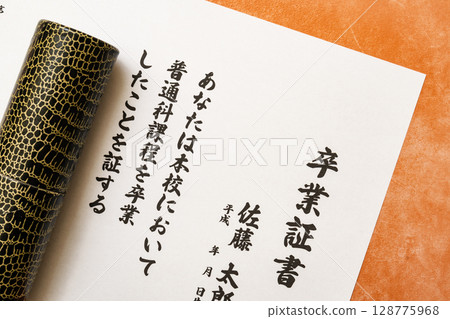 卒業証書
佐藤 太郎
平成 年 月 日
あなたは本校において
普通科課程を卒業
したことを証する
PIXTA
pixta.jp - 128775968